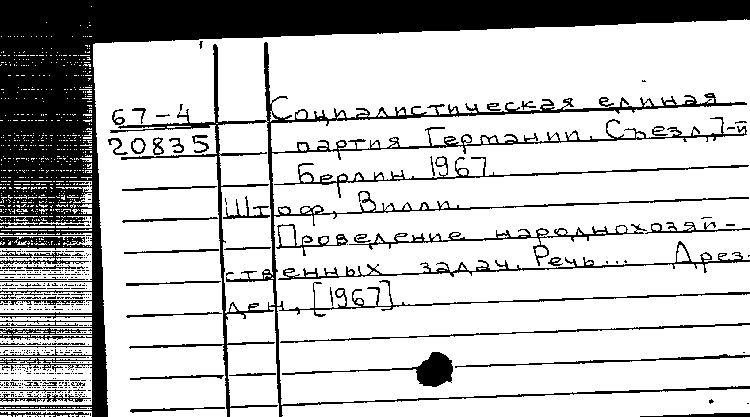 67-4 Социалистическая единая
20835 партия Германии. Съезд, 7-й
Берлин. 1967.
Штоф, Вилли.
Проведение народнохозяй-
ственных задач. Речь... Дрез-
ден, [1967].